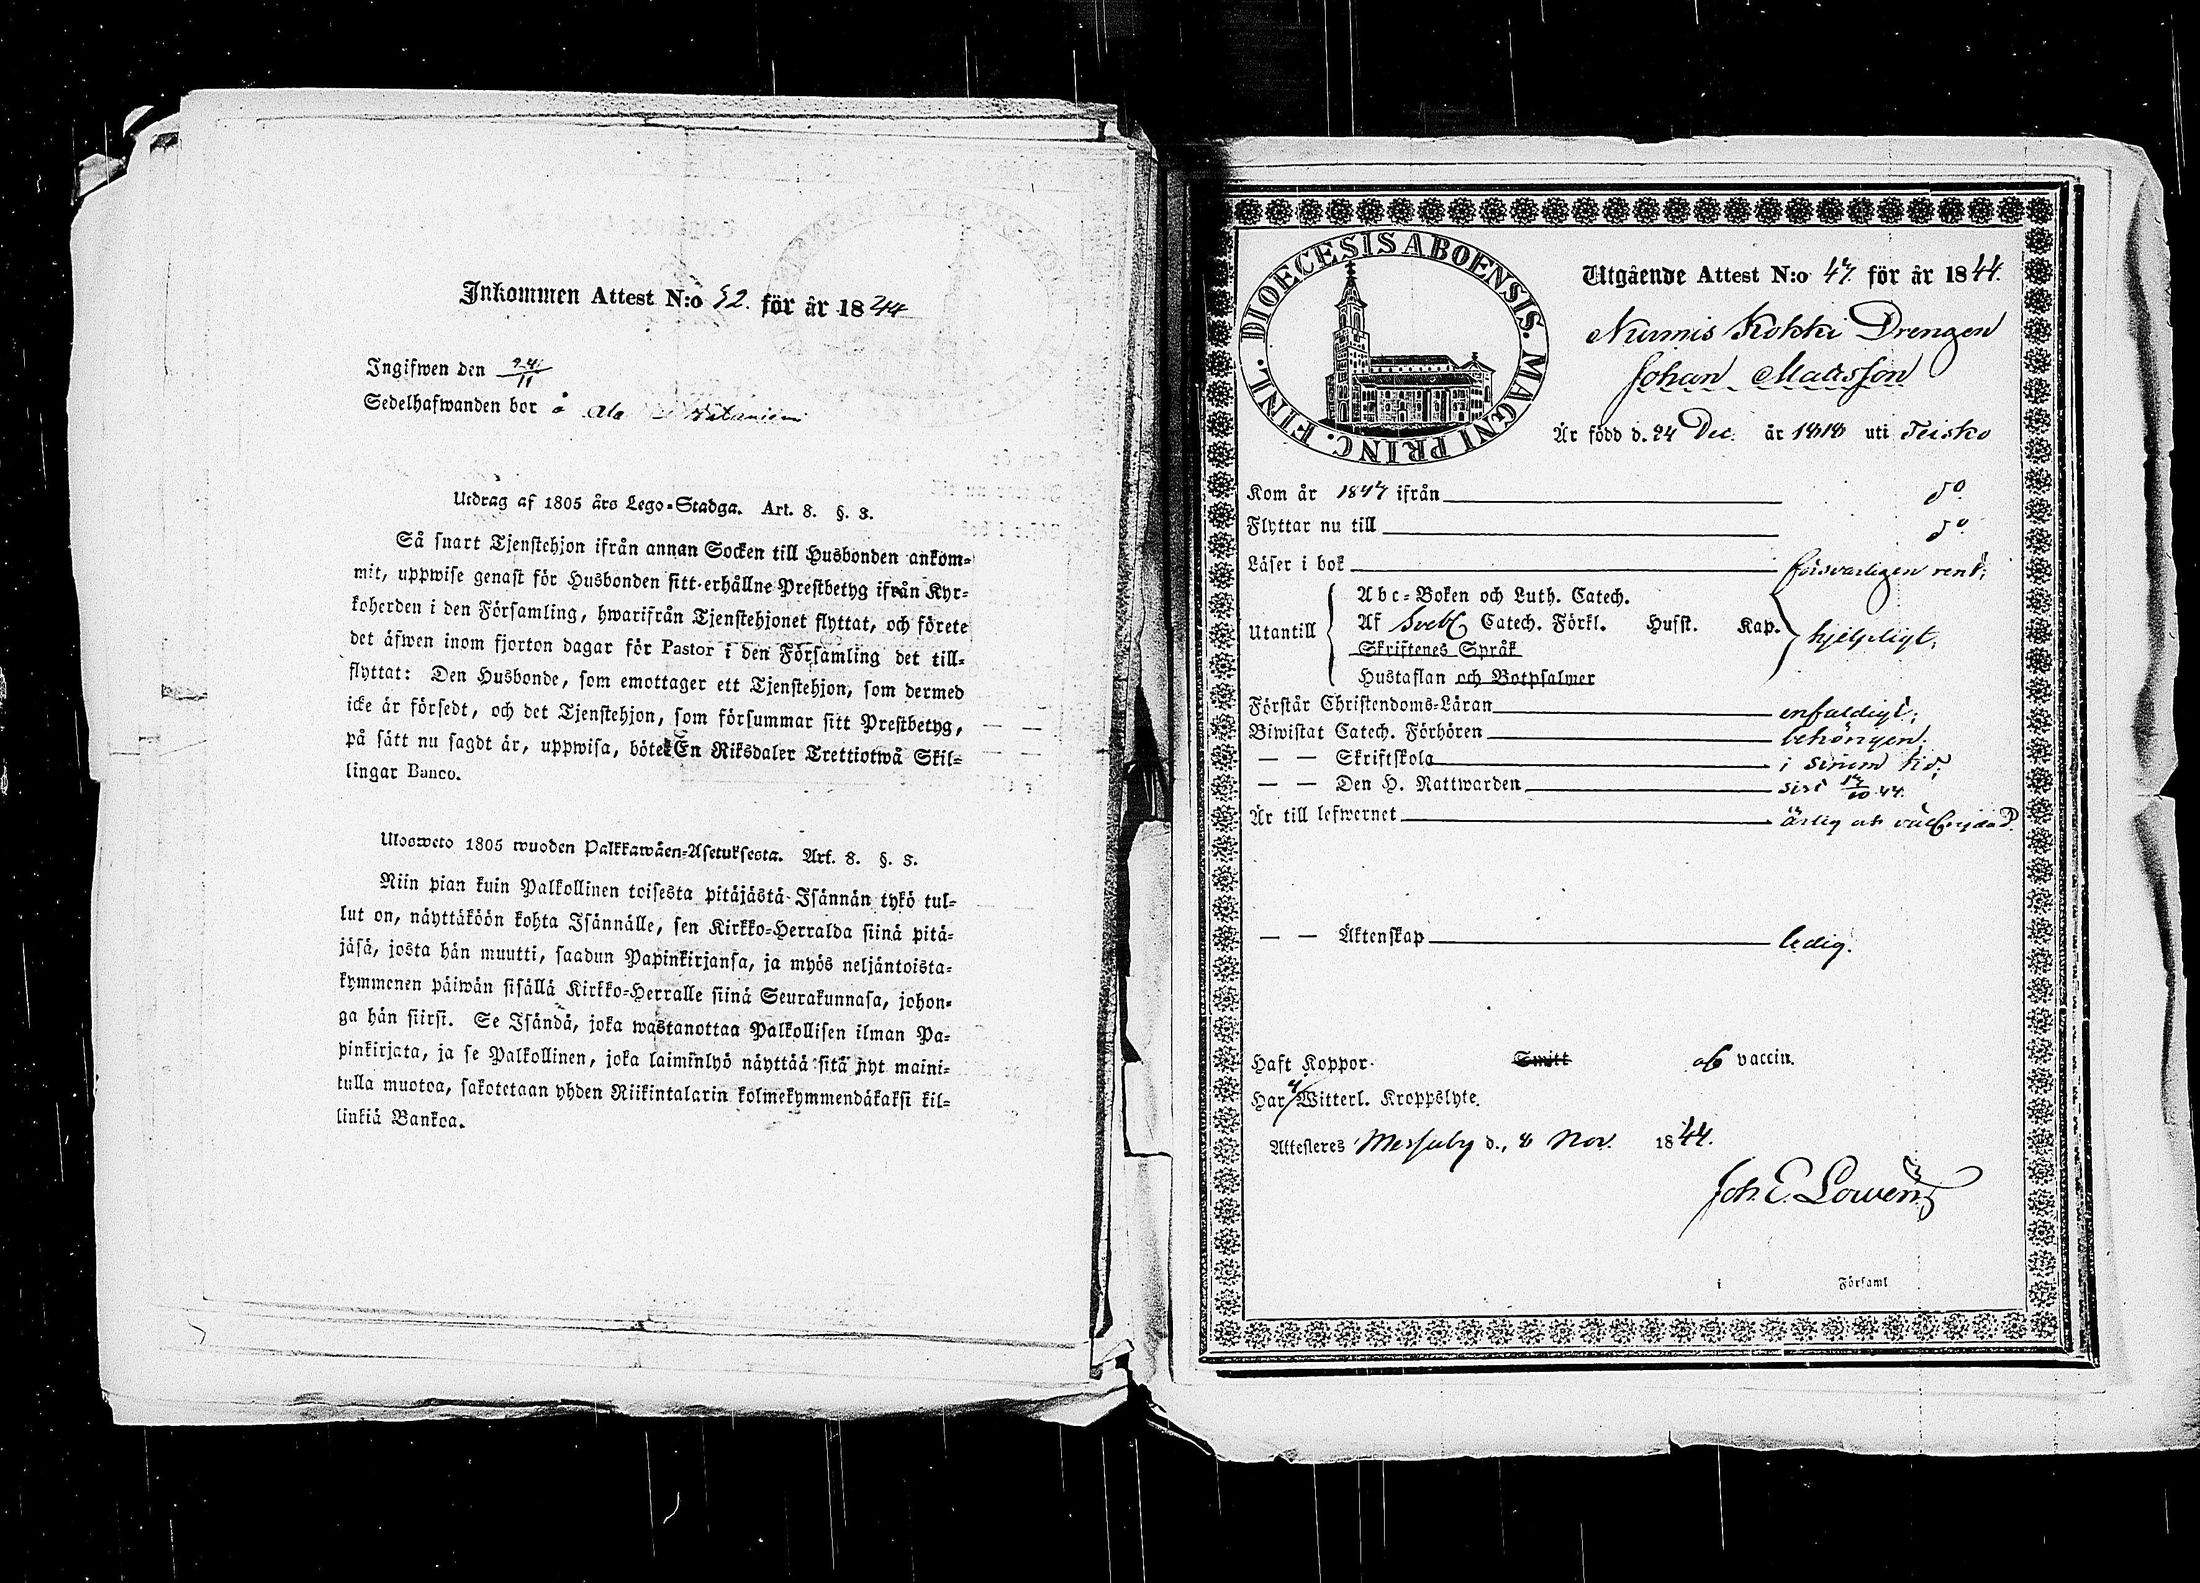 Inkommen Attest N:o 52. för år 1844
Ingifwen den 24/11
Sedelhafwanden bor å Ala
Utdrag af 1805 års Lego-Stadga. Art. 8. §. 3.
Så snart Tjenstehjon ifrån annan Socken till Husbonden ankom-
mit, uppwise genast för Husbonden sitt erhållne Prestbetyg ifrån Kyr-
koherden i den Församling, hwarifrån Tjenstehjonet flyttat, och förete
det äfwen inom fjorton dagar för Pastor i den Församling det till-
flyttat: Den Husbonde, som emottager ett Tjenstehjon, som dermed
icke är försedt, och det Tjenstehjon, som försummar sitt Prestbetyg,
på sätt nu sagdt är, uppwisa, böte En Riksdaler Trettiotwå Skil-
lingar Banco.
Ulosweto 1805 wuoden Palkkawäen-Asetuksesta. Art. 8. §. 3.
Niin pian kuin Palkollinen toisesta pitäjästä Isännän tykö tul-
lut on, näyttäköön kohta Isännälle, sen Kirkko-Herralda siinä pitä-
jäsä, josta hän muutti, saadun Papinkirjansa, ja myös neljäntoista-
kymmenen päiwän sisällä Kirkko-Herralle siinä Seurakunnasa, johon-
ga hän siirsi. Se Isändä, joka wastanottaa Palkollisen ilman Pa-
pinkirjata, ja se Palkollinen, joka laiminlyö näyttää sitä nyt maini-
tulla muotoa, sakotetaan yhden Riikintalarin kolmekymmendäkaksi kil-
linkiä Bankoa.
DIOECESIS ABOENSIS. MAGNI PRINC. FINL.
Utgående Attest N:o 47 för år 1844.
Nurmis Kokki Drengen
Johan Matsson
Är född d. 24 Dec. år 1818 uti Teisko
Kom år 1847 ifrån do
Flyttar nu till do
Läser i bok försvarligen rent;
Utantill
Abc-Boken och Luth. Catech.
Af Sveb. Catech. Förkl. Husst. Kap.
Skriftenes Språk
Hustaflan och Botpsalmer
hjelpligt;
Förstår Christendoms-Läran enfaldigt;
Biwistat Catech. Förhören behörigen.
— — Skriftskola i sinom tid;
— — Den H. Nattwarden sist 17/10 44.
Är till lefwernet ärlig och välfrejdad.
— — Äktenskap ledig.
Haft Koppor. Smitt af vaccin.
Har ej Witterl. Kroppslyte.
Attesteres Messuby d. 8 Nov. 1844.
Joh. E. Lowen
i Församl